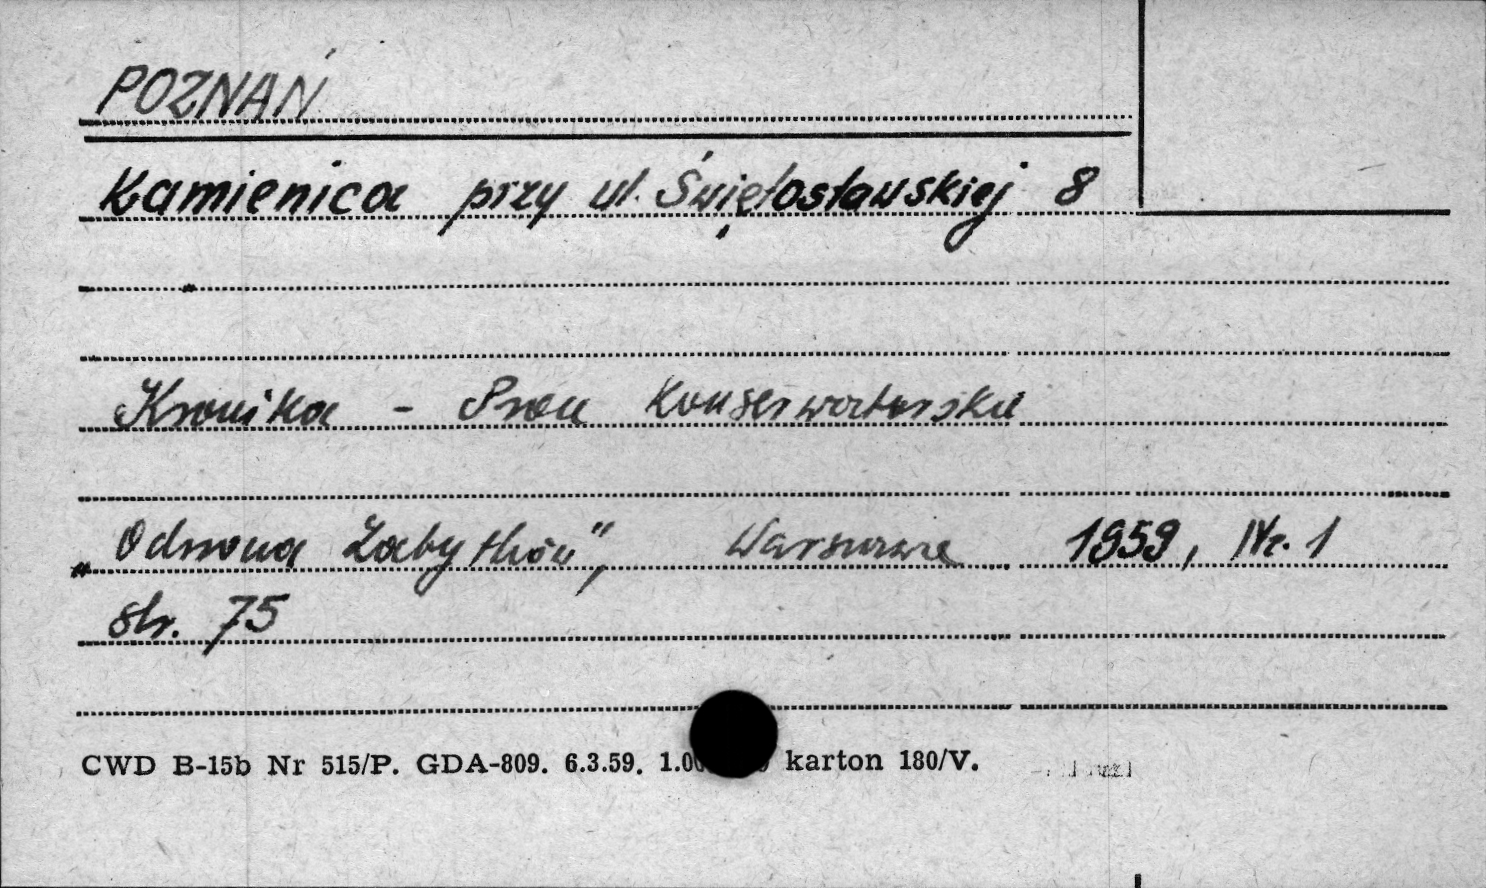 POZNAŃ
Kamienica przy ul. Świętosławskiej 8
Kronika - Prace Konserwatorskie
„Ochrona Zabytków”, Warszawa 1959, Nr. 1
str. 75
CWD B-15b Nr 515/P. GDA-809. 6.3.59. karton 180/V.